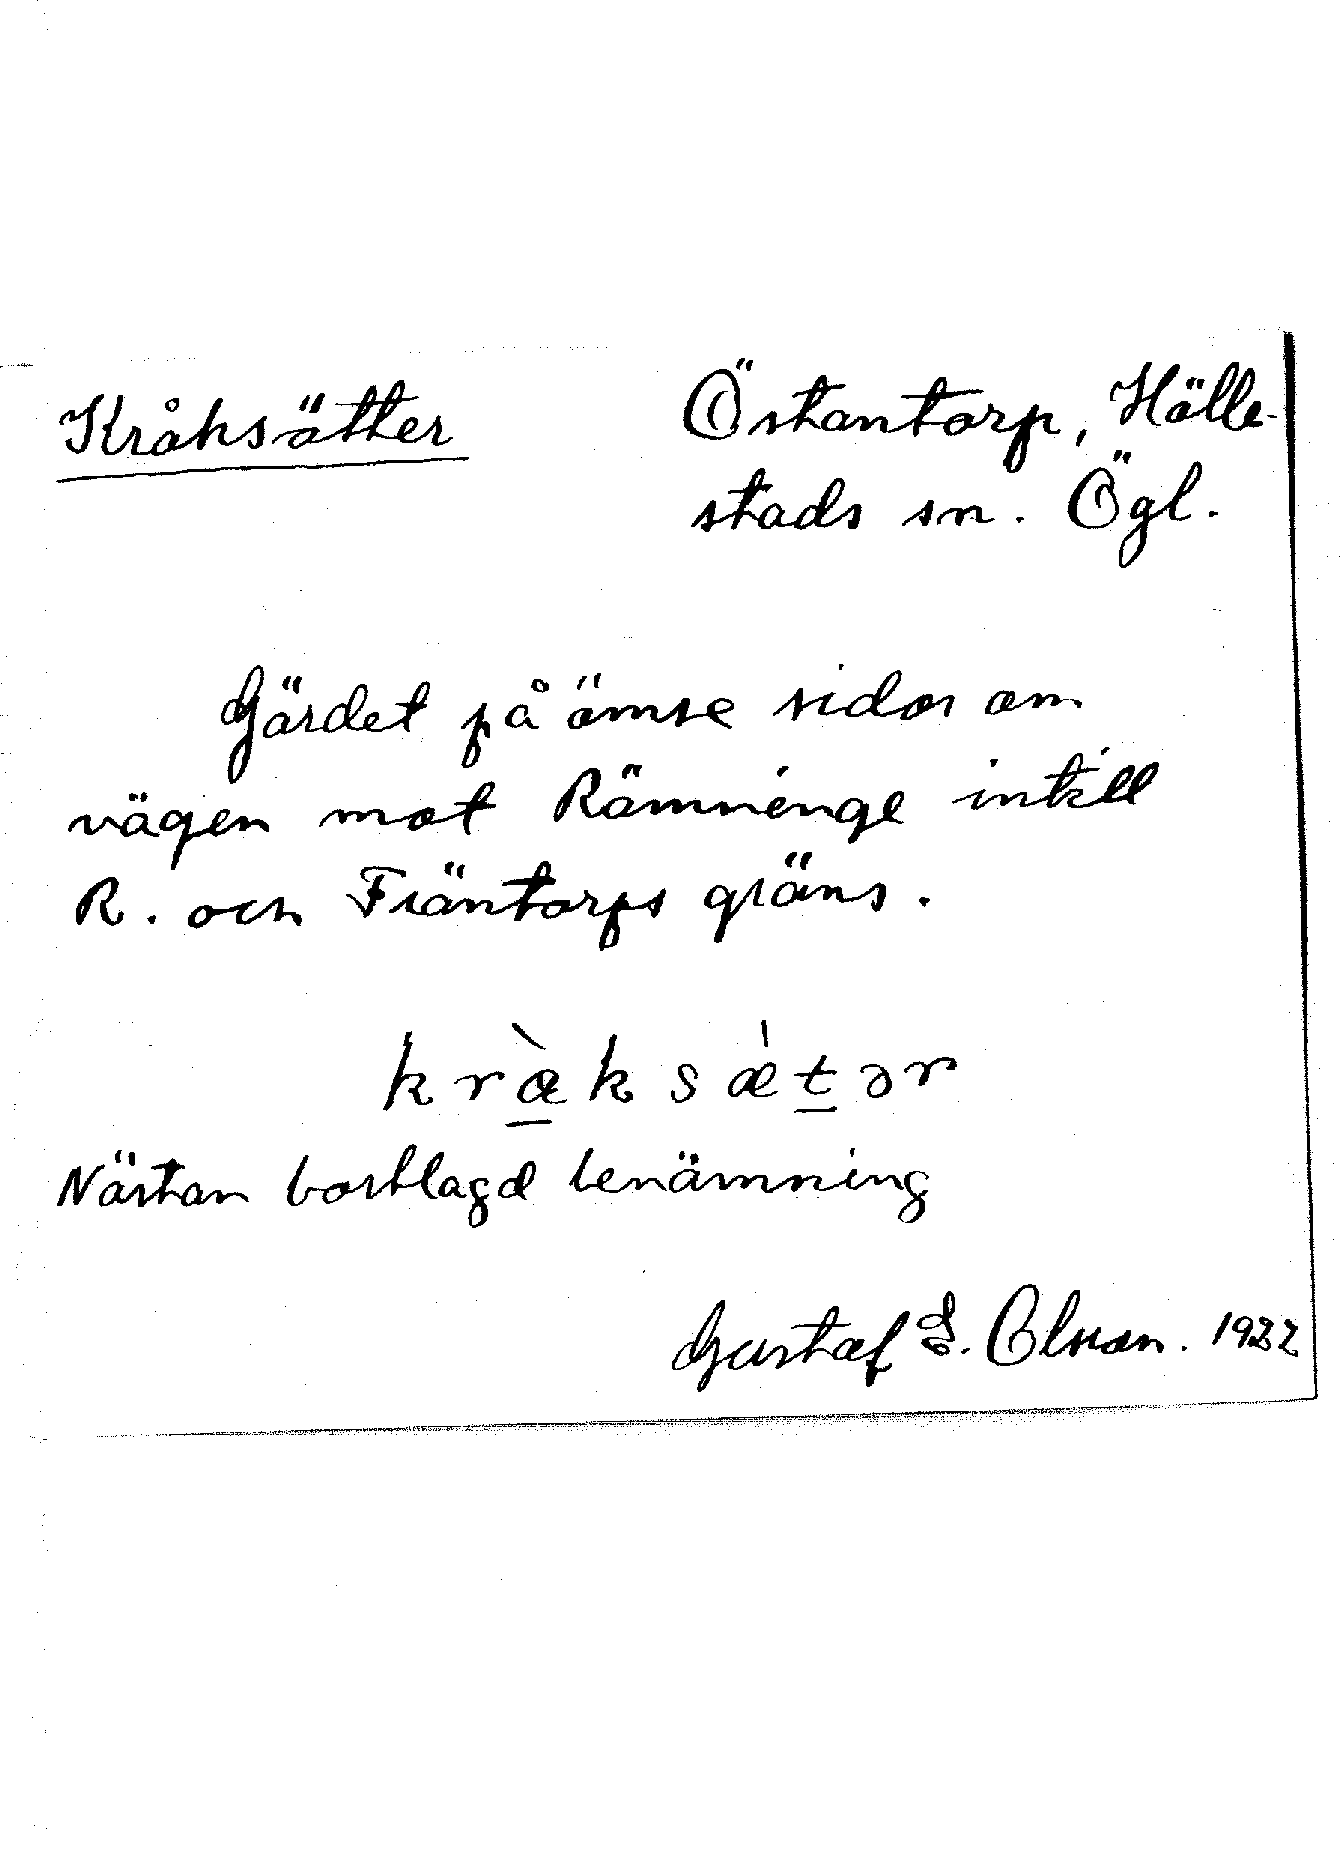 Kråksätter
Östantorp, Hälle-
stads sn. Ögl.
Gärdet på ömse sidor om
vägen mot Rämninge intill
R. och Fräntorps gräns.
kràksǽtər
Nästan bortlagd benämning
Gustaf L. Olsson. 1922